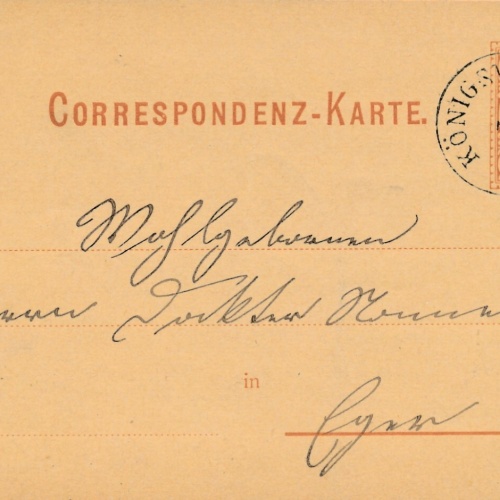 CORRESPONDENZ-KARTE.
KÖNIGS
Wohlgebornen
Doktor
in
Eger